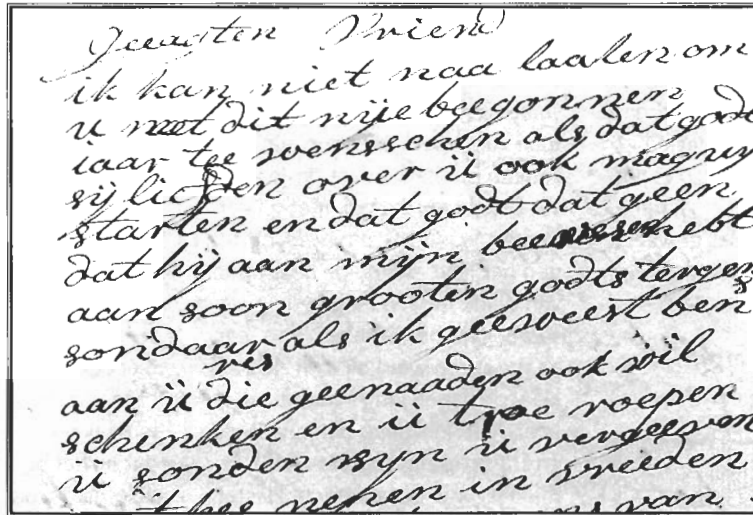 Geeagten Vriend
ik kan niet naa laalen om
u met dit nije beegonnen
iaar tee wensschen als dat godt
sij licht over ü ook mag uij
starten en dat godt dat geen
dat hij aan mijn beeweesen hebt
aan soon grooten godts tergen
sondaar als ik geeweest ben
aan ü die geenaaden ook wil
schenken en ü toe roepen
ü sonden sijn ü vergeeven
hee nenen in vreeden
van